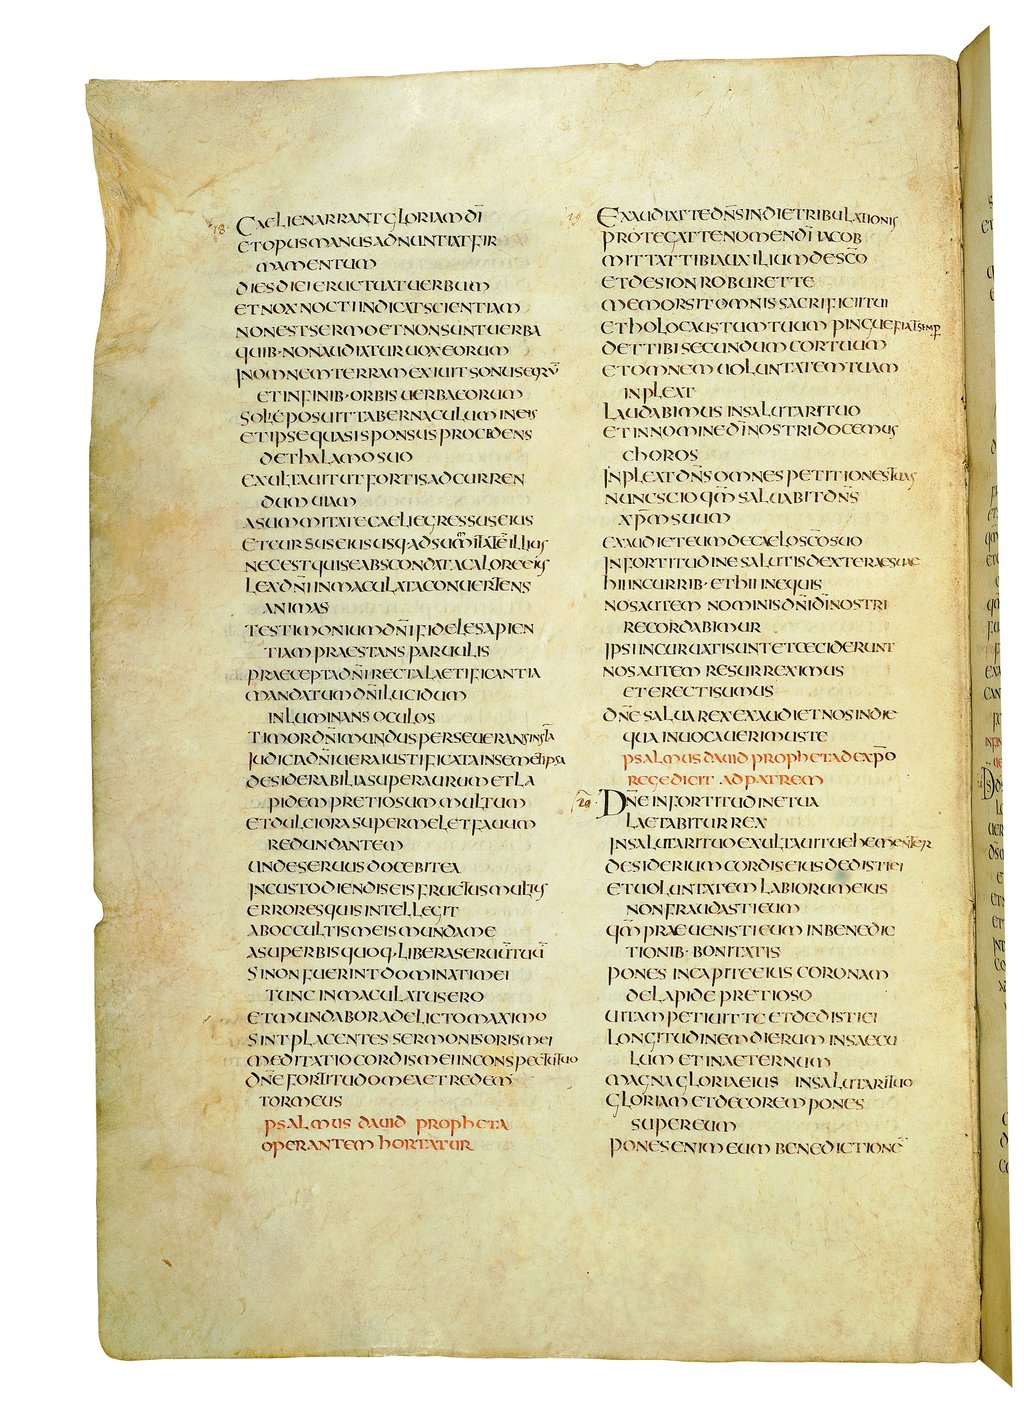 18
CAELI ENARRANT GLORIAM DĪ
ET OPUS MANUS AD NUNTIAT FIR
MAMENTUM
DIES DIEI ERUCTUAT UERBUM
ET NOX NOCTI INDICAT SCIENTIAM
NON EST SERMO ET NON SUNT UERBA
QUIB· NON AUDIATUR UOX EORUM
IN OMNEM TERRAM EXIUIT SONUS EORŪ
ET IN FINIB· ORBIS UERBA EORUM
SOLĒ POSUIT TABERNACULUM IN EIS
ET IPSE QUASI SPONSUS PROCIDENS
DE THALAMO SUO
EXULTAUIT UT FORTIS AD CURREN
DUM UIAM
A SUMMITATE CAELI EGRESSUS EIUS
ET CURSUS EIUS USQ· AD SUMITATĒ ILLIUS
NEC EST QUIS E ABSCONDAT A CALORE EIUS
LEX DN̄I INMACULATA CONUERTENS
ANIMAS
TESTIMONIUM DN̄I FIDELE SAPIEN
TIAM PRAESTANS PARUULIS
PRAECEPTA DN̄I RECTA LAETIFICANTIA
MANDATUM DN̄I LUCIDUM
INLUMINANS OCULOS
TIMOR DN̄I MUNDUS PERSEUERANS IN SC̄LA
IUDICIA DN̄I UERA IUSTIFICATA IN SEMETIPSA
DESIDERABILIA SUPER AURUM ET LA
PIDEM PRETIOSUM MULTUM
ET DULCIORA SUPER MEL ET FAUUM
REDUNDANTEM
UNDE SERUUS DOCEBIT EA
IN CUSTODIENDIS EIS FRUCTUS MULTUS
ERRORES QUIS INTELLEGIT
AB OCCULTIS MEIS MUNDA ME
A SUPERBIS QUOQ· LIBERA SERUŪ TUŪ
SI NON FUERINT DOMINATI MEI
TUNC INMACULATUS ERO
ET MUNDABOR A DELICTO MAXIMO
SINT PLACENTES SERMONIS ORIS MEI
MEDITATIO CORDIS MEI IN CONSPECTU TUO
DN̄E FORTITUDO MEA ET REDEM
TOR MEUS
PSALMUS DAUID PROPHETA
OPERANTEM HORTATUR
19
EXAUDIAT TE DN̄S IN DIE TRIBULATIONIS
PROTEGAT TE NOMEN DĪ IACOB
MITTAT TIBI AUXILIUM DE SC̄O
ET DE SION ROBURET TE
MEMOR SIT OMNIS SACRIFICII TUI
ET HOLOCAUSTUM TUUM PINGUE FIAT SEMP
DET TIBI SECUNDUM COR TUUM
ET OMNEM UOLUNTATEM TUAM
INPLEAT
LAUDABIMUS IN SALUTARI TUO
ET IN NOMINE DĪ NOSTRI DUCEMUS
CHOROS
INPLEAT DN̄S OMNES PETITIONES TUAS
NUNC SCIO QM̄ SALUABIT DN̄S
XPM̄ SUUM
EXAUDIET EUM DE CAELO SC̄O SUO
IN FORTITUDINE SALUTIS DEXTERAE SUAE
HII IN CURRIB· ET HII IN EQUIS
NOS AUTEM NOMINIS DN̄I DĪ NOSTRI
RECORDABIMUR
IPSI INCURUATI SUNT ET CECIDERUNT
NOS AUTEM RESURREXIMUS
ET ERECTI SUMUS
DN̄E SALUA REX EXAUDIET NOS IN DIE
QUA INUOCAUERIMUS TE
PSALMUS DAUID PROPHETA DE XPŌ
REGE DICIT AD PATREM
20
DN̄E IN FORTITUDINE TUA
LAETABITUR REX
IN SALUTARI TUO EXULTAUIT UEHEMENTER
DESIDERIUM CORDIS EIUS DEDISTI EI
ET UOLUNTATEM LABIORUM EIUS
NON FRAUDASTI EUM
QM̄ PRAEUENISTI EUM IN BENEDIC
TIONIB· BONITATIS
PONES IN CAPITE EIUS CORONAM
DE LAPIDE PRETIOSO
UITAM PETIUIT TE ET DEDISTI EI
LONGITUDINEM DIERUM IN SAECU
LUM ET IN AETERNUM
MAGNA GLORIA EIUS IN SALUTARI TUO
GLORIAM ET DECOREM PONES
SUPER EUM
PONES ENIM EUM BENEDICTIONĒ